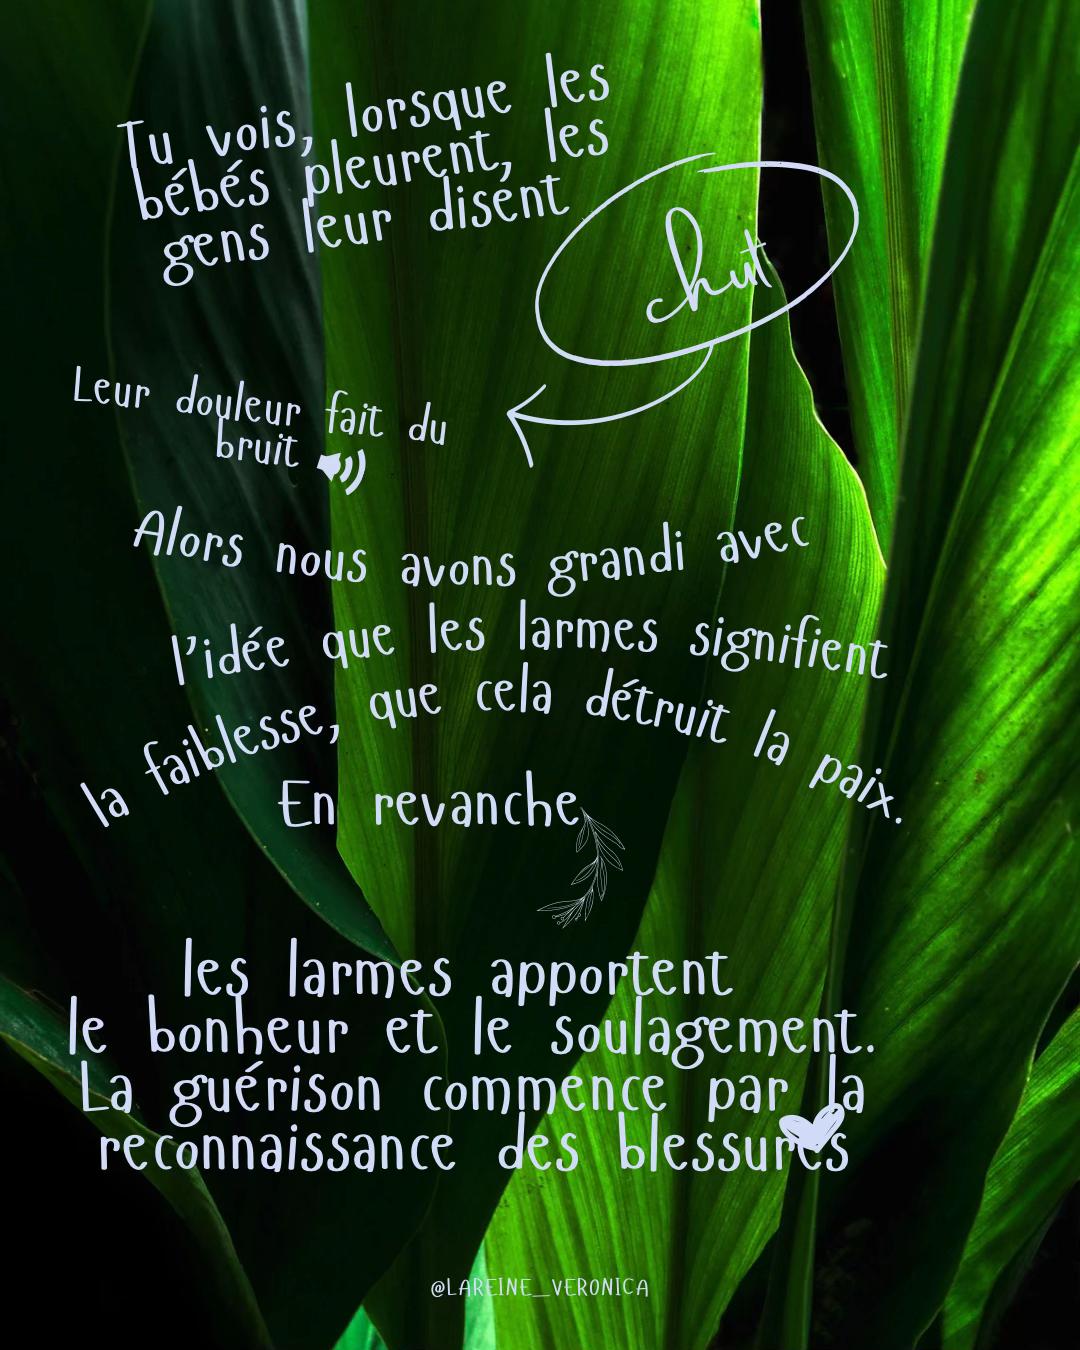 Tu vois, lorsque les
bébés pleurent, les
gens leur disent
chut
Leur douleur fait du
bruit
Alors nous avons grandi avec
l'idée que les larmes signifient
la faiblesse, que cela détruit la paix.
En revanche
les larmes apportent
le bonheur et le soulagement.
La guérison commence par la
reconnaissance des blessures
@LAREINE_VERONICA